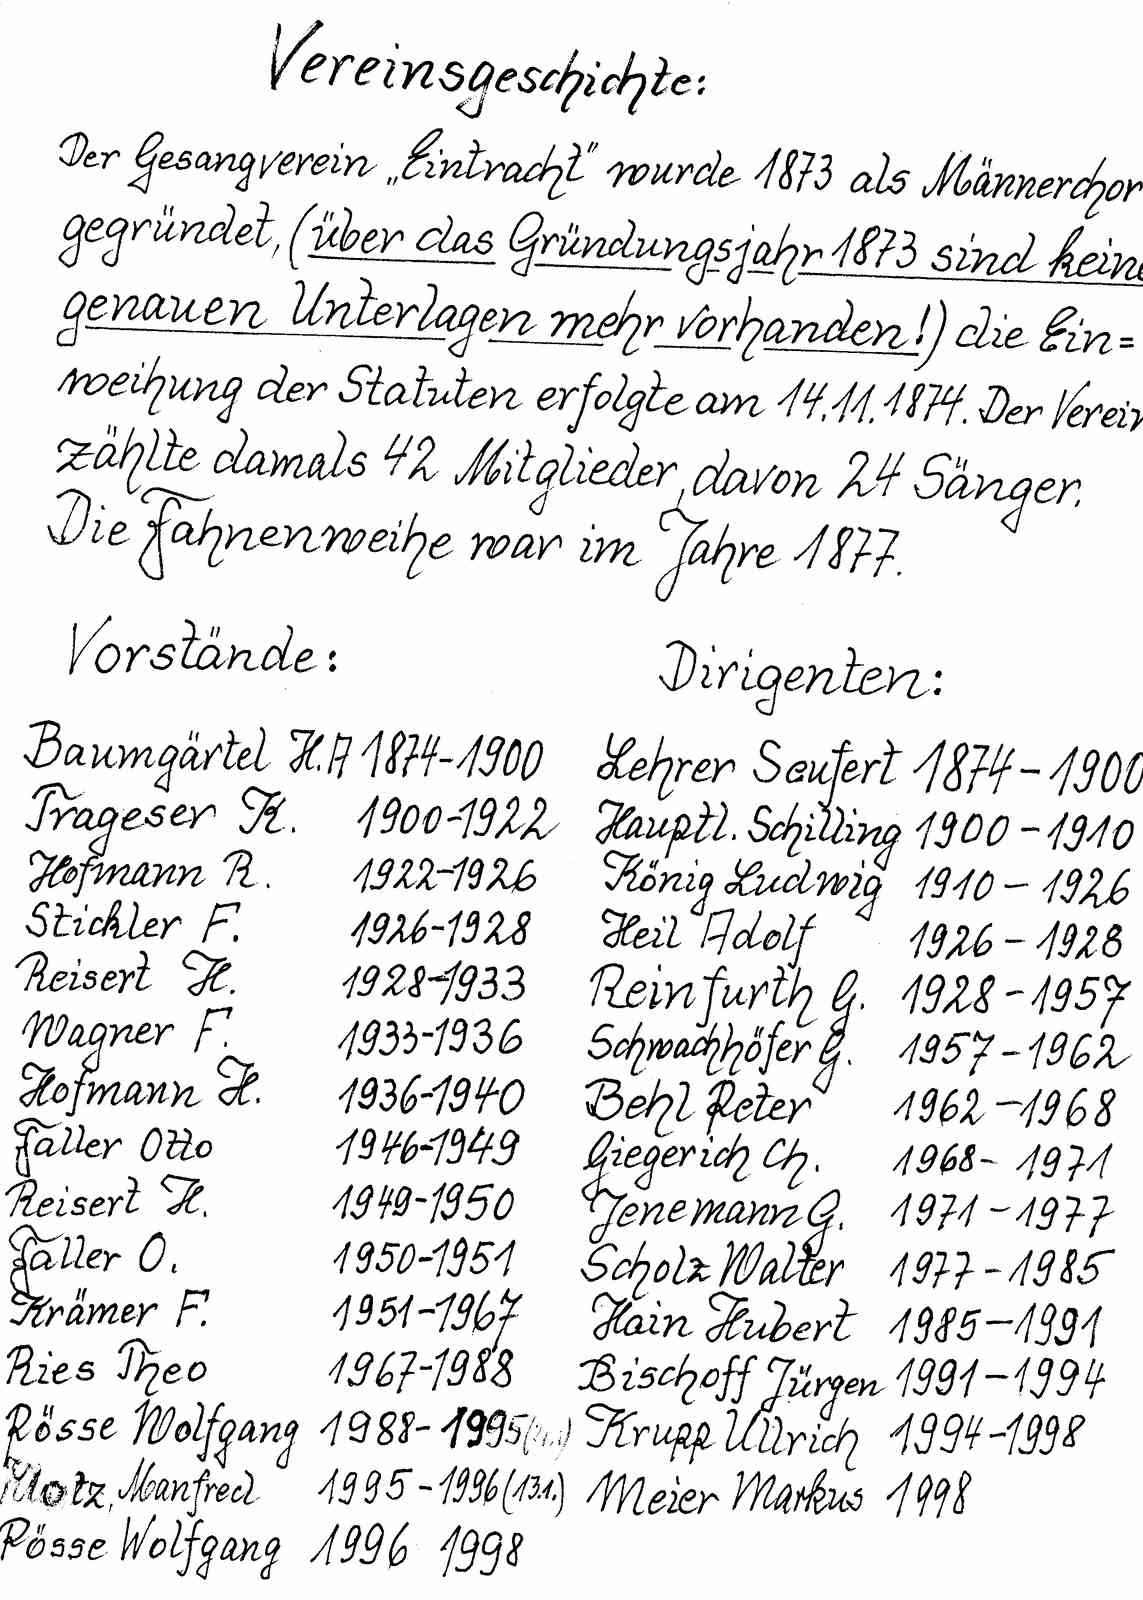 Vereinsgeschichte:
Der Gesangverein „Eintracht" wurde 1873 als Männerchor
gegründet, (über das Gründungsjahr 1873 sind keine
genauen Unterlagen mehr vorhanden!) die Ein=
weihung der Statuten erfolgte am 14.11.1874. Der Verein
zählte damals 42 Mitglieder, davon 24 Sänger.
Die Fahnenweihe war im Jahre 1877.
Vorstände:
Baumgärtel H.A 1874-1900
Trageser K. 1900-1922
Hofmann R. 1922-1926
Stickler F. 1926-1928
Reisert H. 1928-1933
Wagner F. 1933-1936
Hofmann H. 1936-1940
Faller Otto 1946-1949
Reisert H. 1949-1950
Faller O. 1950-1951
Krämer F. 1951-1967
Ries Theo 1967-1988
Rösse Wolfgang 1988-1995
Motz, Manfred 1995-1996 (13.1.)
Rösse Wolfgang 1996 1998
Dirigenten:
Lehrer Seufert 1874-1900
Hauptl. Schilling 1900-1910
König Ludwig 1910-1926
Heil Adolf 1926-1928
Reinfurth G. 1928-1957
Schwachhöfer G. 1957-1962
Behl Peter 1962-1968
Giegerich Ch. 1968-1971
Jenemann G. 1971-1977
Scholz Walter 1977-1985
Hain Hubert 1985-1991
Bischoff Jürgen 1991-1994
Krupp Ullrich 1994-1998
Meier Markus 1998